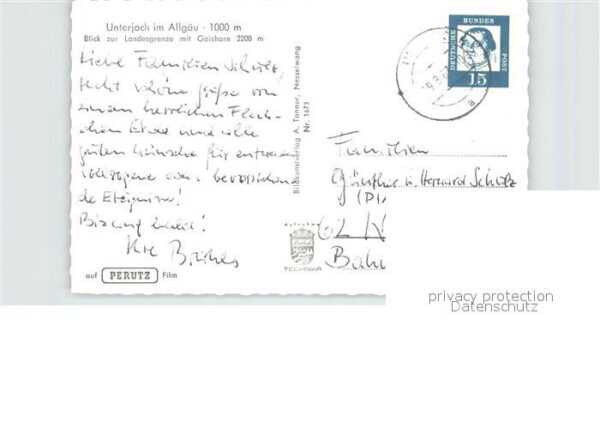 Unterjoch im Allgäu · 1000 m
Blick zur Landesgrenze mit Gaishorn 2200 m
Liebe Familien Schütz,
recht schöne Grüße von
einem herrlichen Fleck-
chen Erde und alle
guten Wünsche für entweder
vollzogene oder bevorstehen-
de Ereignisse!
Bis bald!
Ihre
auf PERUTZ Film
Bildkunstverlag A. Tanner, Nesselwang
Nr. 1673
TECHNIKA
DEUTSCHE BUNDES POST
15
Familien
Günther u. Hermann Schütz
62 W
Bahn
privacy protection
Datenschutz